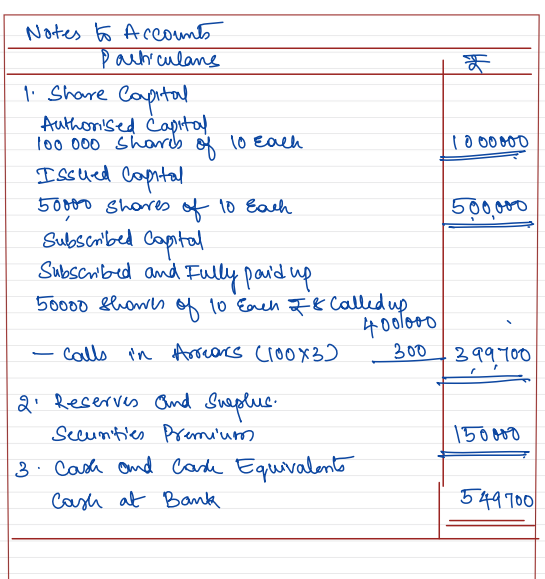 Notes to Accounts
Particulars ₹
1. Share Capital
Authorised Capital
100 000 shares of 10 Each 1000000
Issued Capital
50000 shares of 10 Each 500,000
Subscribed Capital
Subscribed and Fully paid up
50000 shares of 10 Each ₹8 Called up
400000
– Calls in Arrears (100X3) 300 399700
2. Reserves and Surplus.
Securities Premium 150000
3. Cash and Cash Equivalents
Cash at Bank 549700